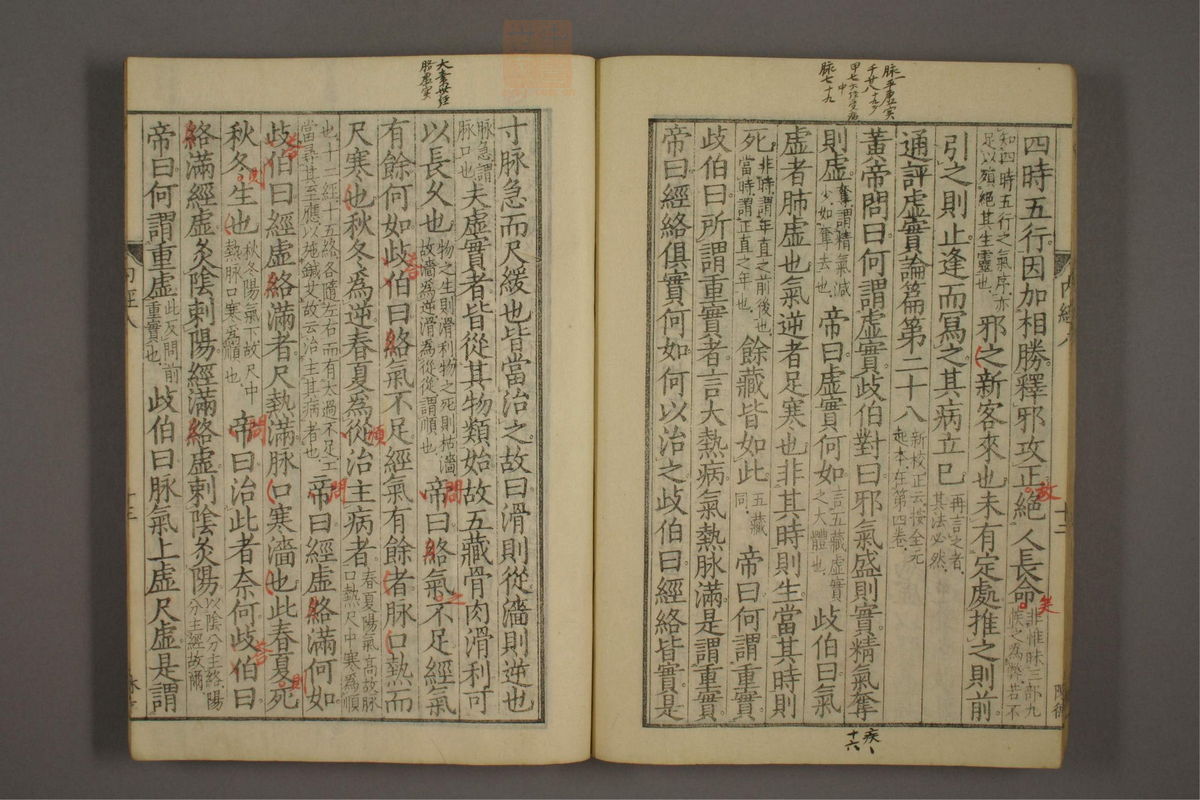 四時五行因加相勝釋邪攻正絕人長命非惟昧三部九候之為弊若不
知四時五行之氣序亦足以殞絕其生靈也邪之新客來也未有定處推之則前
引之則止逢而寫之其病立已再言之者其法必然
通評虛實論篇第二十八新校正云按全元起本在第四卷
黃帝問曰何謂虛實歧伯對曰邪氣盛則實精氣奪
則虛奪謂精氣減少如奪去也帝曰虛實何如言五藏虛實之大體也歧伯曰氣
虛者肺虛也氣逆者足寒也非其時則生當其時則
死非時謂年直之前後也當時謂正直之年也餘藏皆如此五藏同帝曰何謂重實
歧伯曰所謂重實者言大熱病氣熱脉滿是謂重實
帝曰經絡俱實何如何以治之歧伯曰經絡皆實是
寸脉急而尺緩也皆當治之故曰滑則從濇則逆也
脉急謂脉口也夫虛實者皆從其物類始故五藏骨肉滑利可
以長久也物之生則滑利物之死則枯濇故濇為逆滑為從從謂順也帝曰絡氣不足經氣
有餘何如歧伯曰絡氣不足經氣有餘者脉口熱而
尺寒也秋冬為逆春夏為從治主病者春夏陽氣高故脉口熱尺中寒為順
也十二經十五絡各隨左右而有太過不足工當尋其至應以施鍼艾故云治主其病者也帝曰經虛絡滿何如
歧伯曰經虛絡滿者尺熱滿脉口寒濇也此春夏死
秋冬生也秋冬陽氣下故尺中熱脉口寒為順也帝曰治此者奈何歧伯曰
絡滿經虛灸陰刺陽經滿絡虛刺陰灸陽以陰分主絡陽分主經故爾
帝曰何謂重虛此反問前重實也歧伯曰脉氣上虛尺虛是謂
内經八
十三